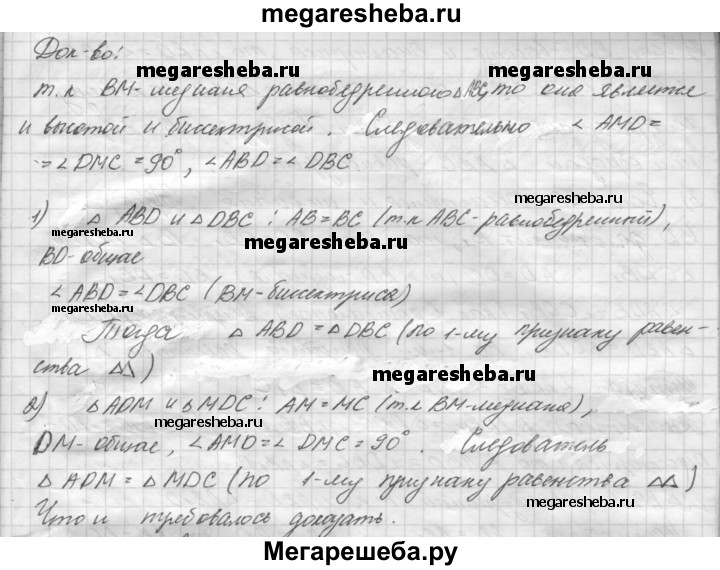 megaresheba.ru
Док-во:
megaresheba.ru megaresheba.ru
т.к ВМ-медиана равнобедренного △ АВС, то она является
и высотой и биссектрисой. Следовательно ∠ AMD=
=∠DMC =90°, ∠ABD=∠DBC
megaresheba.ru
1) △ ABD и △DBC : AB=BC (т.к ABC-равнобедренный),
megaresheba.ru
megaresheba.ru
BD-общая
∠ABD=∠DBC (BM-биссектриса)
megaresheba.ru
Тогда △ ABD =△DBC (по 1-му признаку равен-
ства △△)
megaresheba.ru
2) △ADM и △MDC : AM=MC (т.к BM-медиана),
DM-общая, ∠AMD=∠DMC=90°. Следователь
△ ADM = △ MDC (по 1-му признаку равенства △△)
megaresheba.ru
Что и требовалось доказать.
megaresheba.ru
Мегарешеба.ру